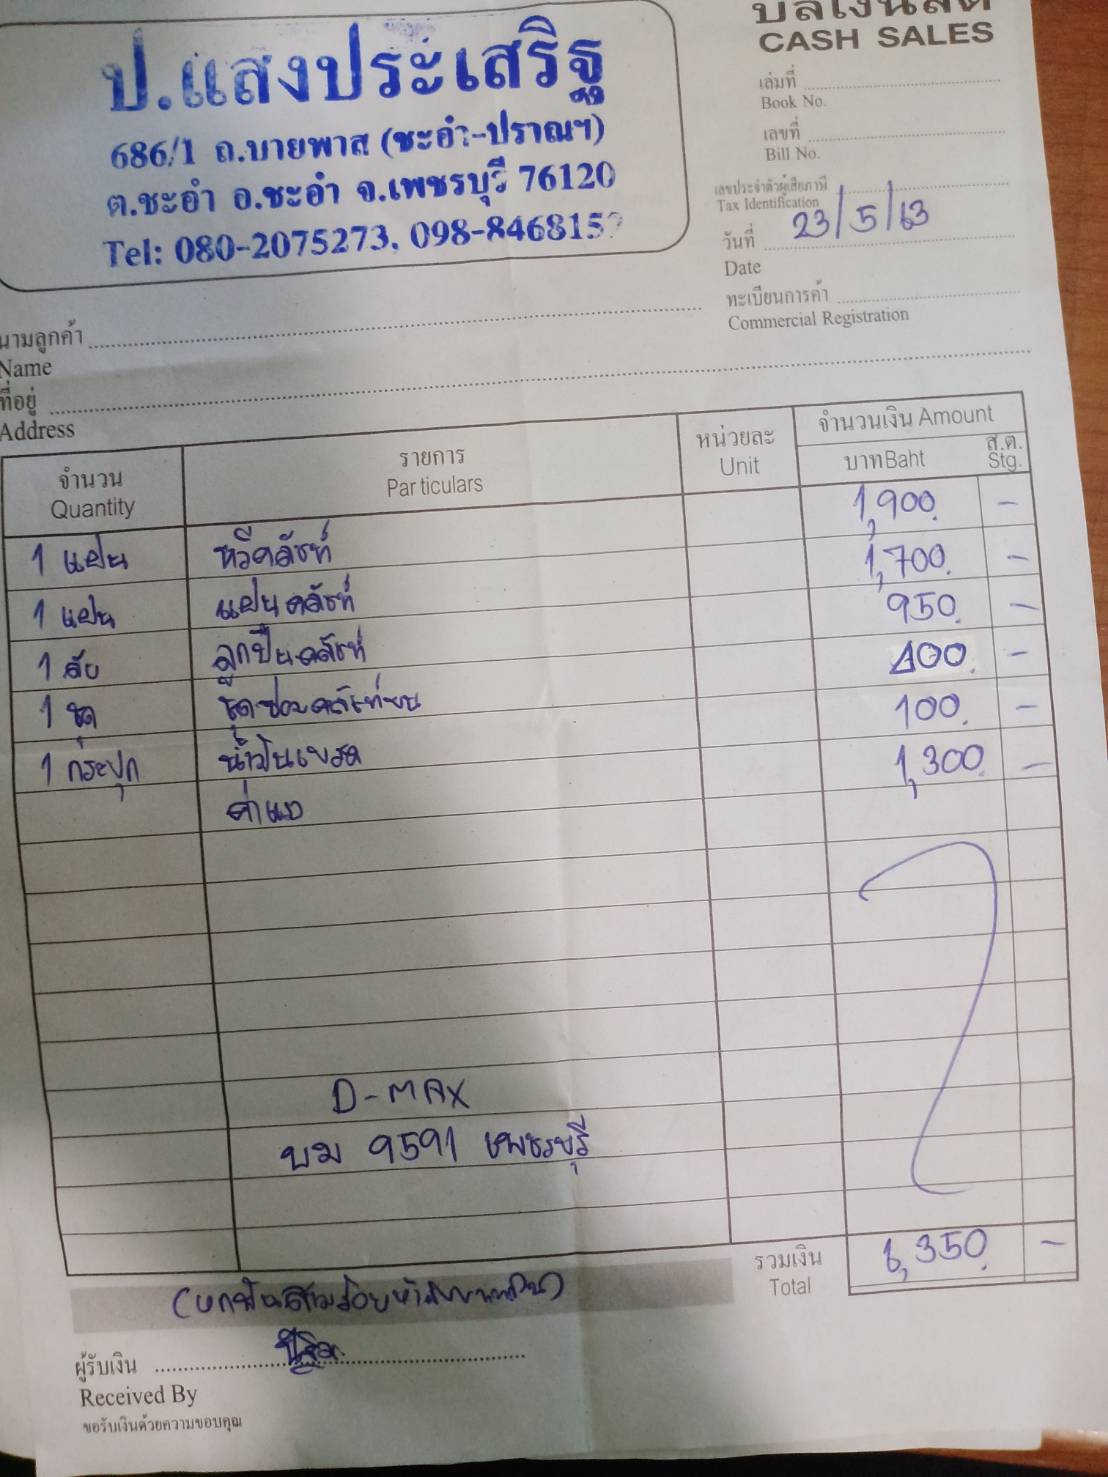 บิลเงินสด
CASH SALES
ป.แสงประเสริฐ
686/1 ถ.บายพาส (ชะอำ-ปราณฯ)
ต.ชะอำ อ.ชะอำ จ.เพชรบุรี 76120
Tel: 080-2075273, 098-846815
เล่มที่
Book No.
เลขที่
Bill No.
เลขประจำตัวผู้เสียภาษี
Tax Identification
วันที่ 23/5/63
Date
ทะเบียนการค้า
Commercial Registration
นามลูกค้า
Name
ที่อยู่
Address
จำนวน รายการ หน่วยละ จำนวนเงิน Amount
Quantity Particulars Unit บาท Baht ส.ต. Stg.
1 แผ่น หวีคลัชท์ 1,900 -
1 แผ่น แผ่นคลัชท์ 1,700 -
1 ลับ ลูกปืนคลัชท์ 950 -
1 ชุด ชุดซ่อมคลัชท์บน 400 -
1 กระปุก น้ำมันเบรค 100 -
ค่าแรง 1,300 -
D-MAX
บม 9591 เพชรบุรี
รวมเงิน 6,350 -
Total
(หกพันสามร้อยห้าสิบบาทถ้วน)
ผู้รับเงิน
Received By
ขอรับเงินด้วยความขอบคุณ